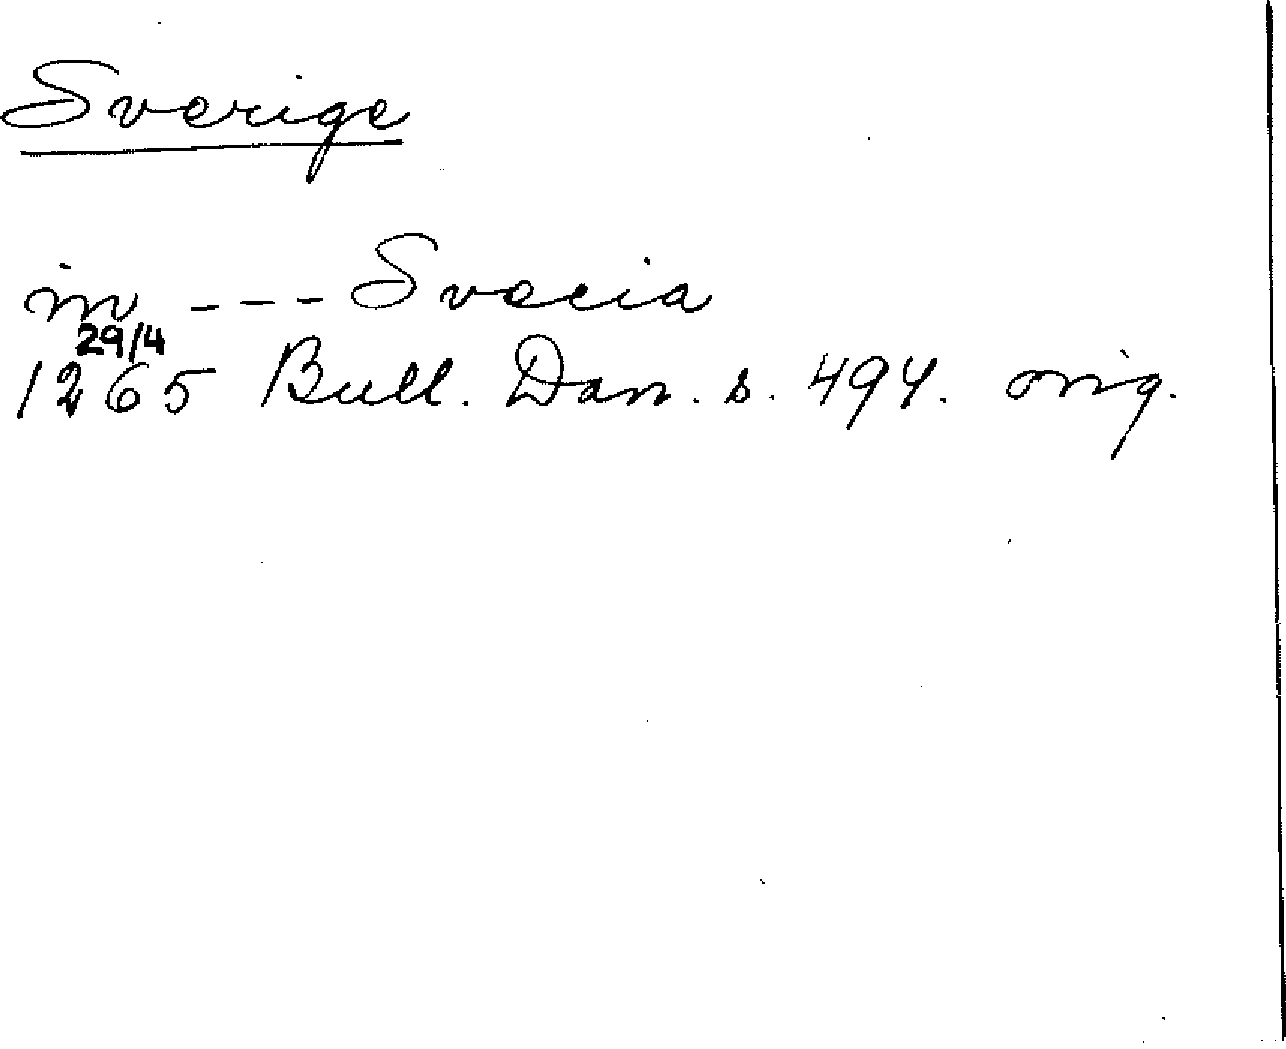 Sverige
in - - - Svecia
29/4
1265 Bull. Dan. s. 494. orig.